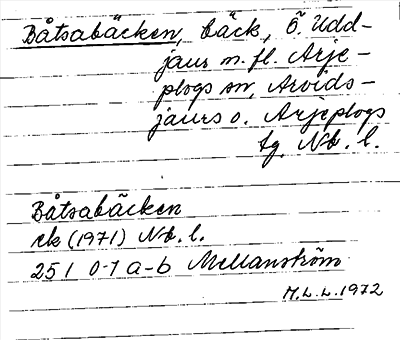 Båtsabäcken, bäck, Ö. Udd-
jaur m. fl. Arje-
plogs sn, Arvids-
jaurs o. Arjeplogs
tg, Nb. l.
Båtsabäcken
rk (1971) Nb. l.
25 I 0-1 a-b Mellanström
M.L.L. 1972